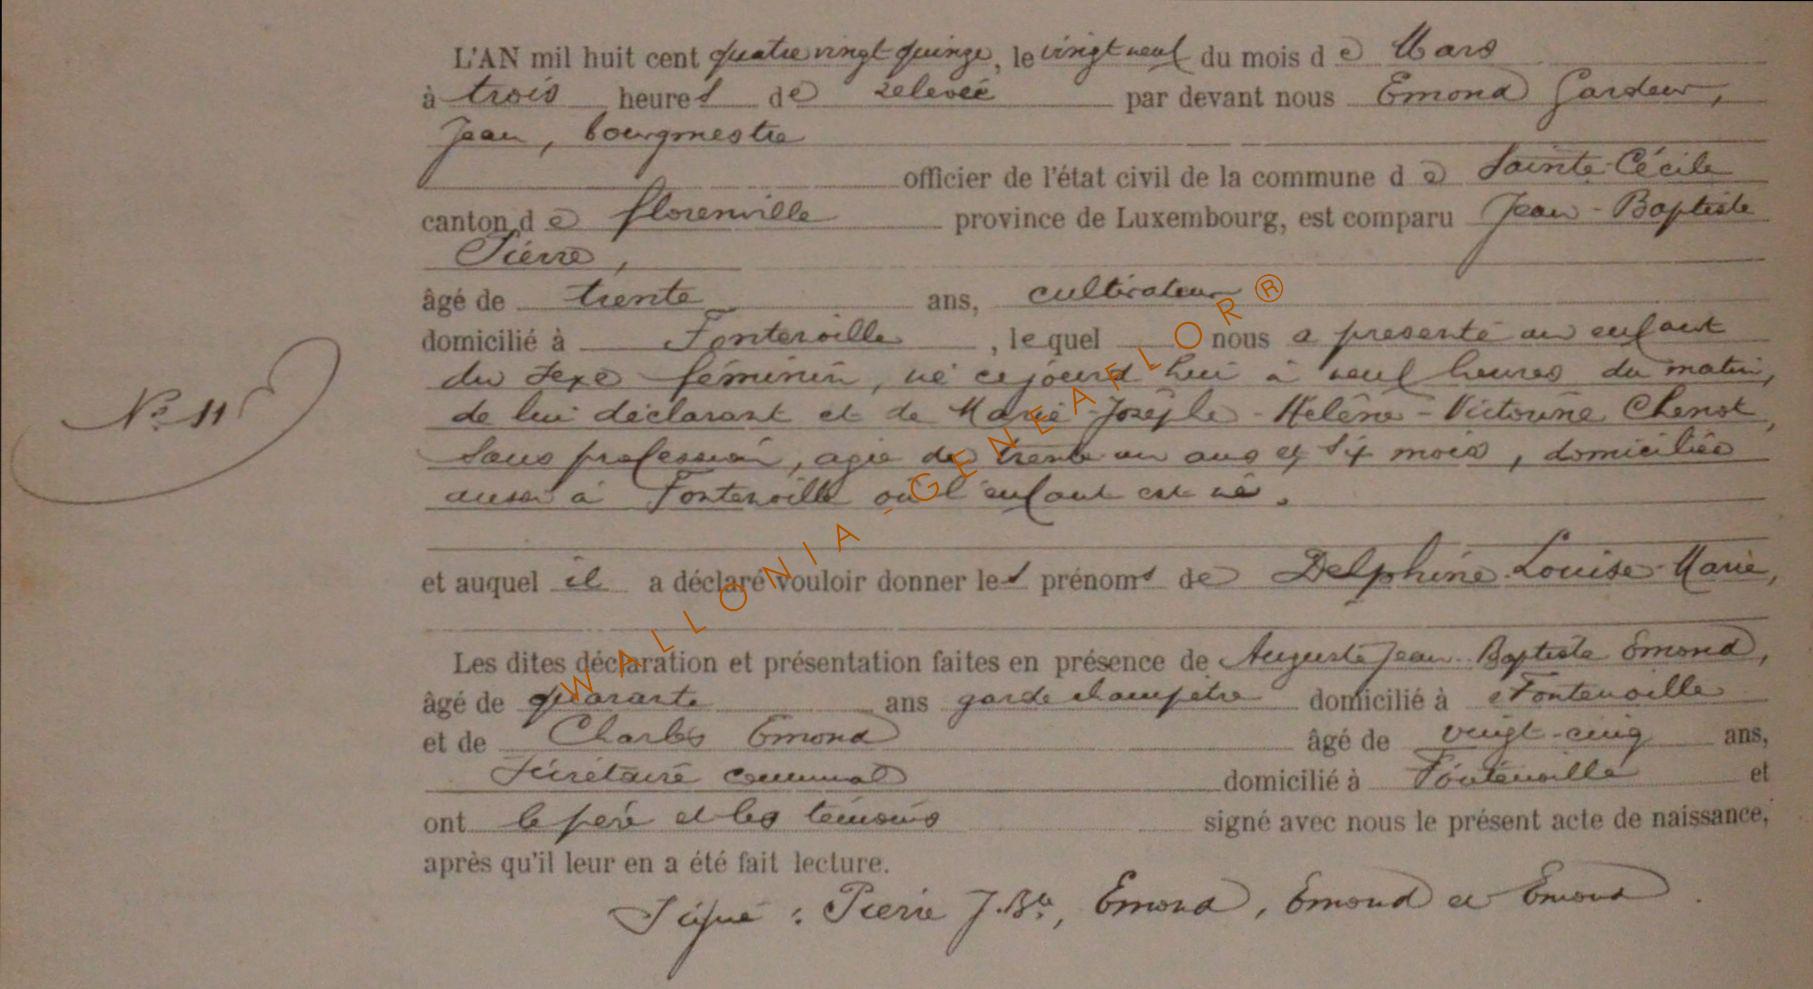 L'AN mil huit cent quatre vingt quinze, le vingt neuf du mois de Mars
à trois heures de relevée par devant nous Emond Gardeur,
Jean, bourgmestre
officier de l'état civil de la commune de Sainte-Cécile
canton de florenville province de Luxembourg, est comparu Jean-Baptiste
Pierre,
âgé de trente ans, cultivateur
domicilié à Fontenoille, lequel nous a presenté un enfant
du sexe féminin, né cejourd'hui à neuf heures du matin,
de lui déclarant et de Marie-Josèphe-Hélène-Victorine Chenot,
sans profession, agée de trente un ans et six mois, domiciliée
aussi à Fontenoille où l'enfant est né.
et auquel il a déclaré vouloir donner les prénoms de Delphine-Louise-Marie,
Les dites déclaration et présentation faites en présence de Auguste Jean Baptiste Emond,
âgé de quarante ans garde champêtre domicilié à Fontenoille
et de Charles Emond âgé de vingt-cinq ans,
Sécrétaire communal domicilié à Fontenoille et
ont le père et les témoins signé avec nous le présent acte de naissance,
après qu'il leur en a été fait lecture.
Signé : Pierre J. Bte, Emond, Emond et Emond.
No 11
WALLONIA - GENEAFLOR ®